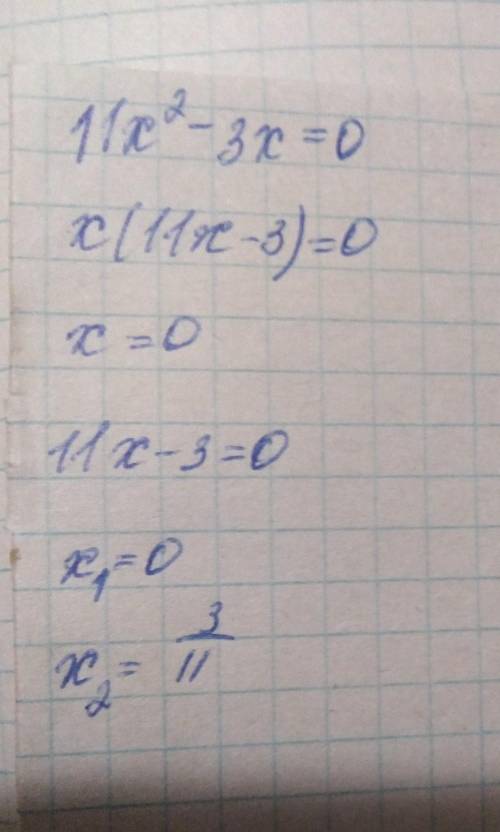 11x² - 3x = 0
x(11x - 3) = 0
x = 0
11x - 3 = 0
x₁ = 0
x₂ = 3/11